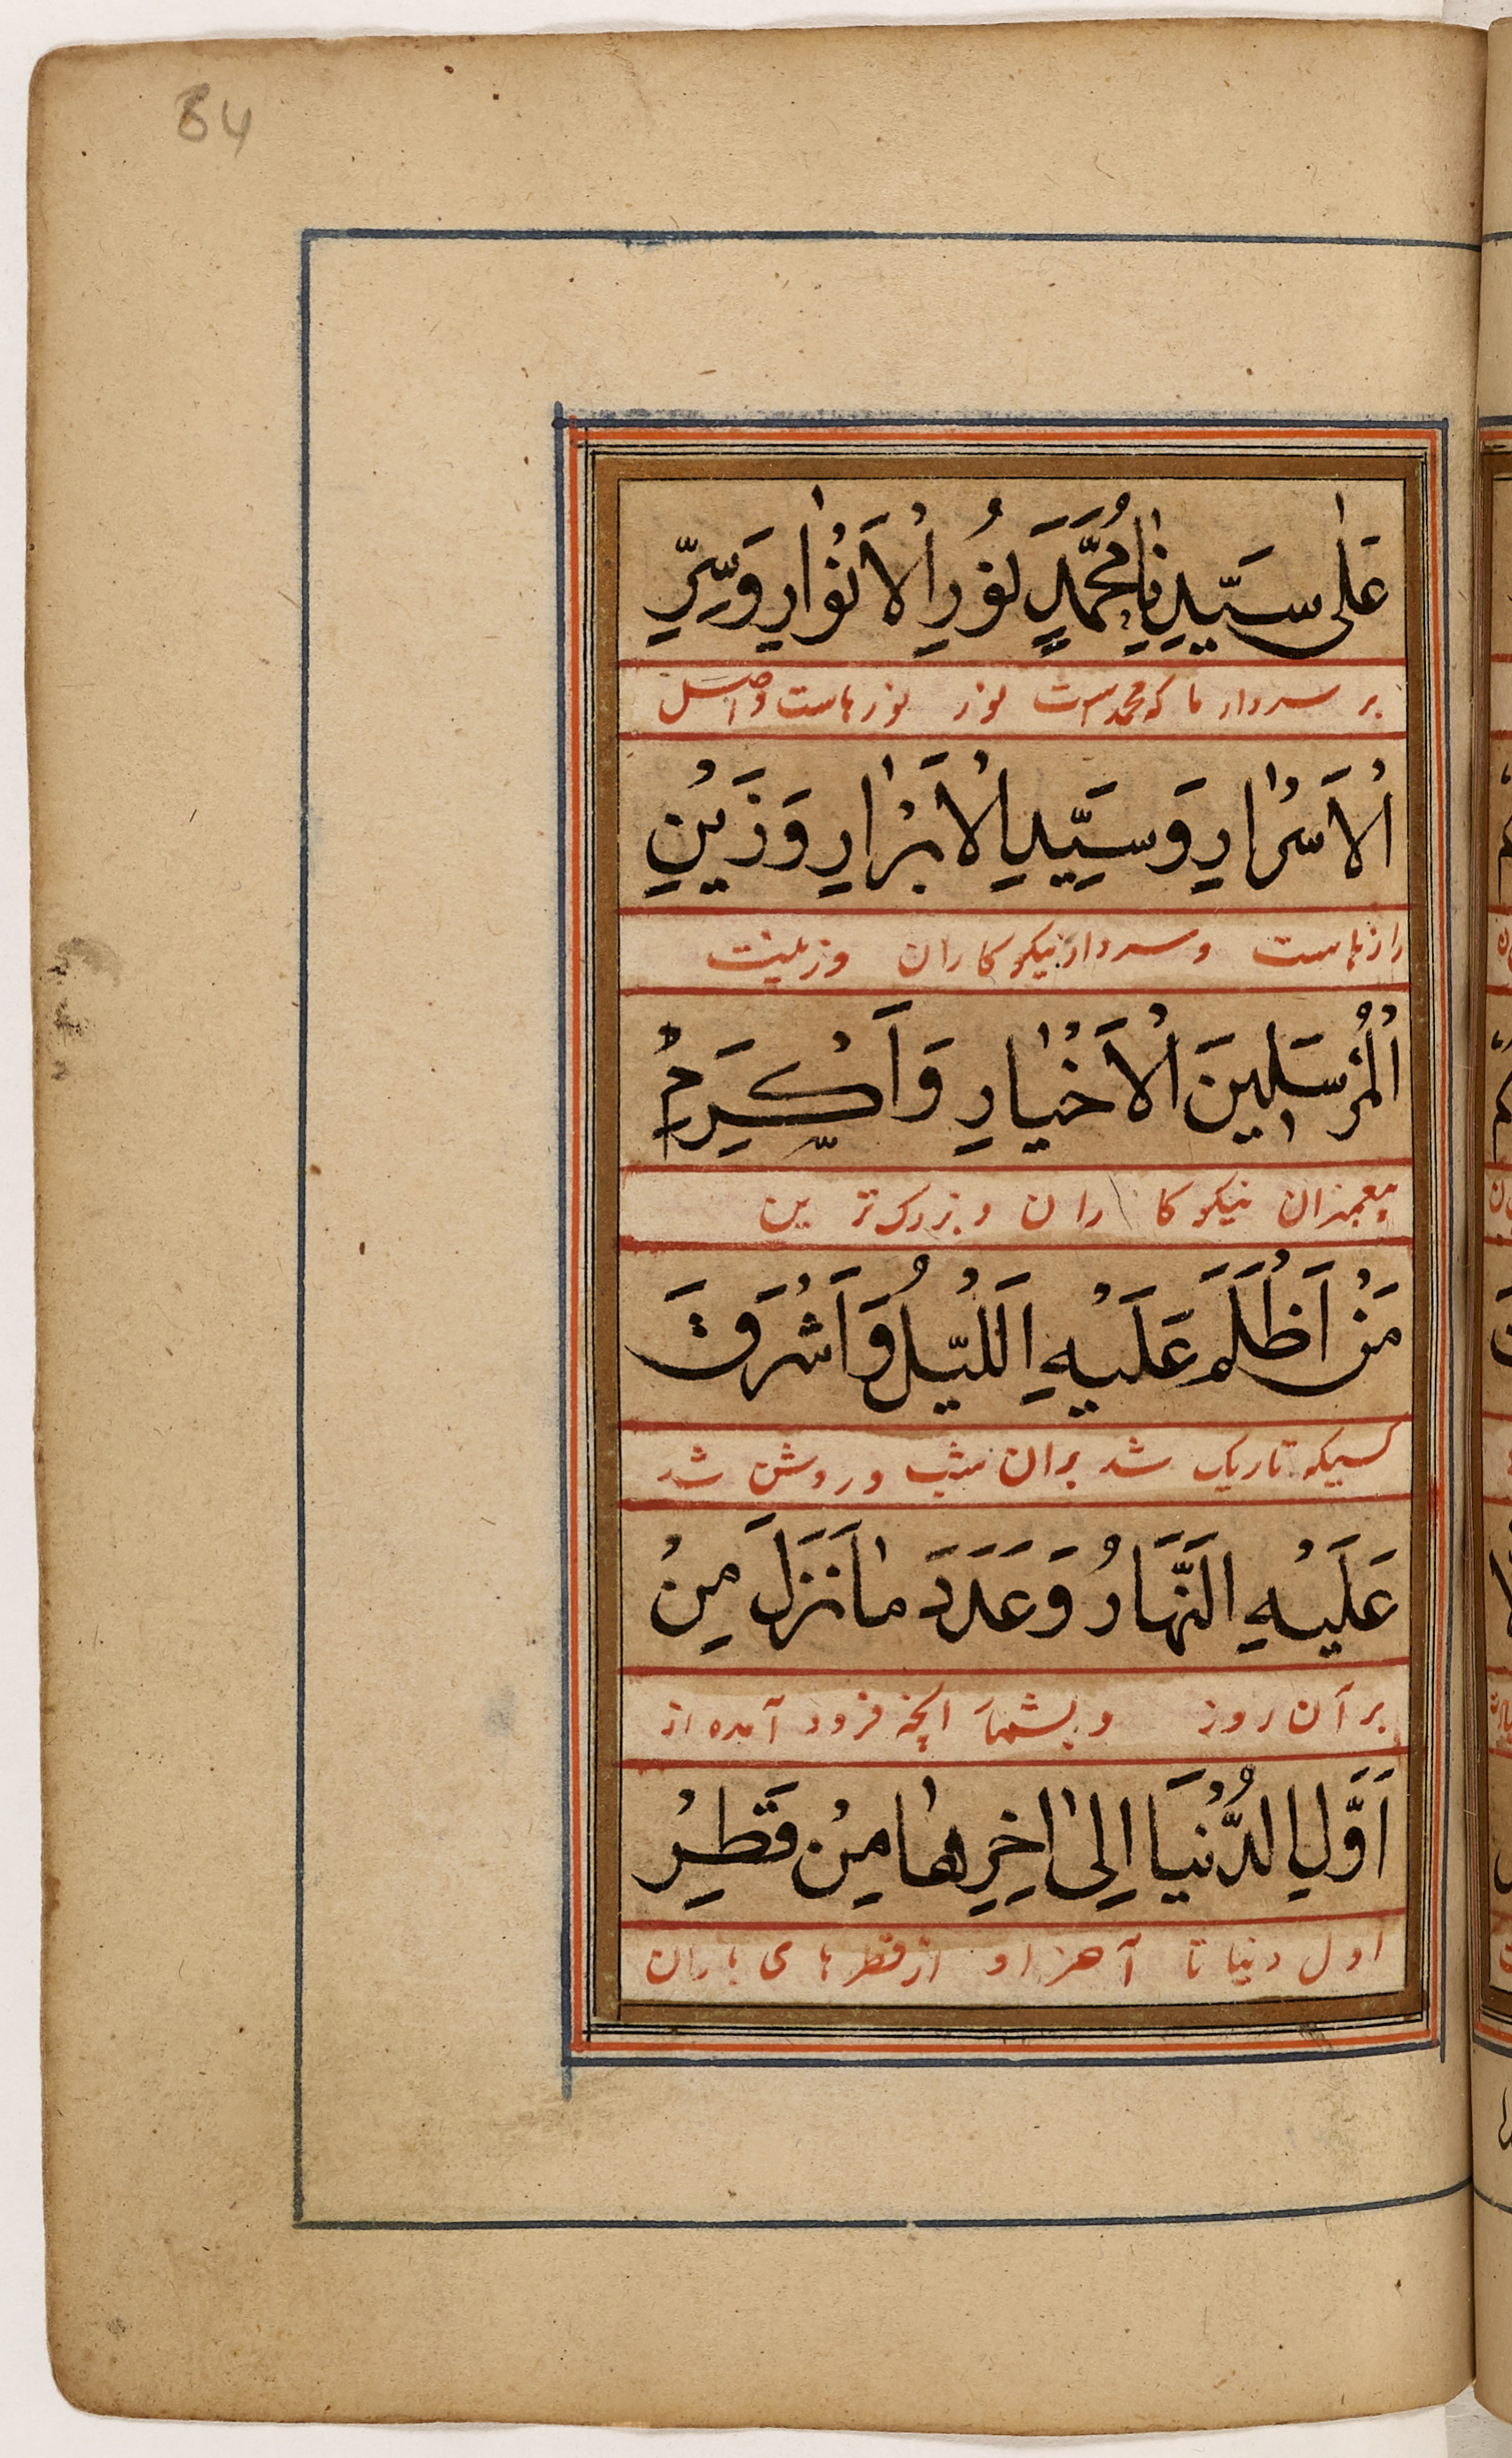 84
عَلىٰ سَيِّدِنٰا مُحَمَّدٍ نُورِ الْاَنْوٰارِ وَسِرِّ
بر سردار ما که محمد است نور نورهاست و اصل
الْاَسْرٰارِ وَسَيِّدِ الْاَبْرٰارِ وَزَيْنِ
رازهاست و سردار نیکوکاران و زینت
الْمُرْسَلِينَ الْاَخْيٰارِ وَاَكْرَمِ
پیغمبران نیکوکاران و بزرک‌ترین
مَنْ اَظْلَمَ عَلَيْهِ اَللَّيْلُ وَاَشْرَقَ
کسیکه تاریک شد بران شب و روشن شد
عَلَيْهِ النَّهَارُ وَعَدَدَ مٰا نَزَلَ مِنْ
بر آن روز و بشمار آنچه فرود آمده از
اَوَّلِ الدُّنْيَا اِلىٰ اٰخِرِهٰا مِنْ قَطْرِ
اول دنیا تا آخر او از قطرهای باران